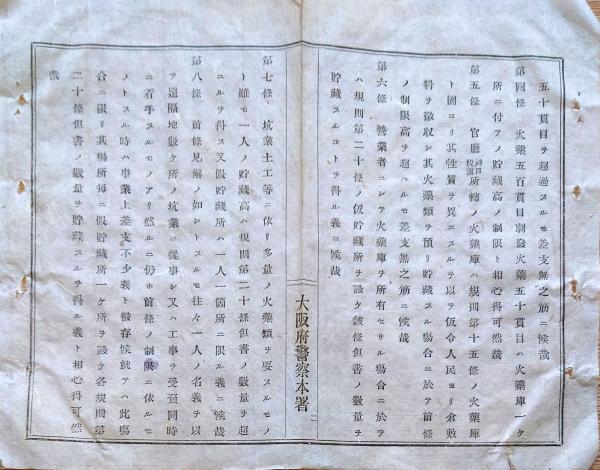 五十貫目ヲ超過スルモ差支無之筋ニ候哉
第四條 火藥五百貫目劇發火藥五十貫目ハ火藥庫一ケ
所ニ付テノ貯藏高ノ制限ト相心得可然哉
第五條 官廳神戸税關所轄ノ火藥庫ハ規則第十五條ノ火藥庫
ト固ヨリ其性質ヲ異ニスルヲ以テ仮令人民ヨリ倉敷
料ヲ徴収シ其火藥類ヲ預リ貯藏スル塲合ニ於テ前條
ノ制限高ヲ超ユルモ差支無之筋ニ候哉
第六條 營業者ニシテ火藥庫ヲ所有セサル塲合ニ於テ
ハ規則第二十條ノ仮貯藏所ヲ設ケ該條但書ノ數量ヲ
貯藏スルコトヲ得ル義ニ候哉
大阪府警察本署
二
第七條 坑業土工等ニ依リ多量ノ火藥類ヲ要スルモノ
ト雖モ一人ノ貯藏高ハ規則第二十條但書ノ數量ヲ超
ユルヲ得ス又假貯藏所ハ一人一箇所ニ限ル義ニ候哉
第八條 前條見解ノ如シトスルモ往々一人ノ名義ヲ以
テ遠隔地數ケ所ノ坑業ニ從事シ又ハ工事ヲ受負同時
ニ着手スルモノアリ然ルニ仍ホ前條ノ制限ニ依ルモ
ノトスル時ハ事業上差支不少義ト被存候就テハ此塲
合ニ限リ其塲所毎ニ假貯藏所一ケ所ヲ設ケ各規則第
二十條但書ノ數量ヲ貯藏スルヲ得ル義ト相心得可然
哉